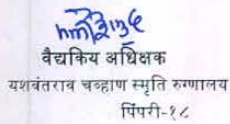 वैद्यकिय अधिक्षक
यशवंतराव चव्हाण स्मृति रुग्णालय
पिंपरी-१८